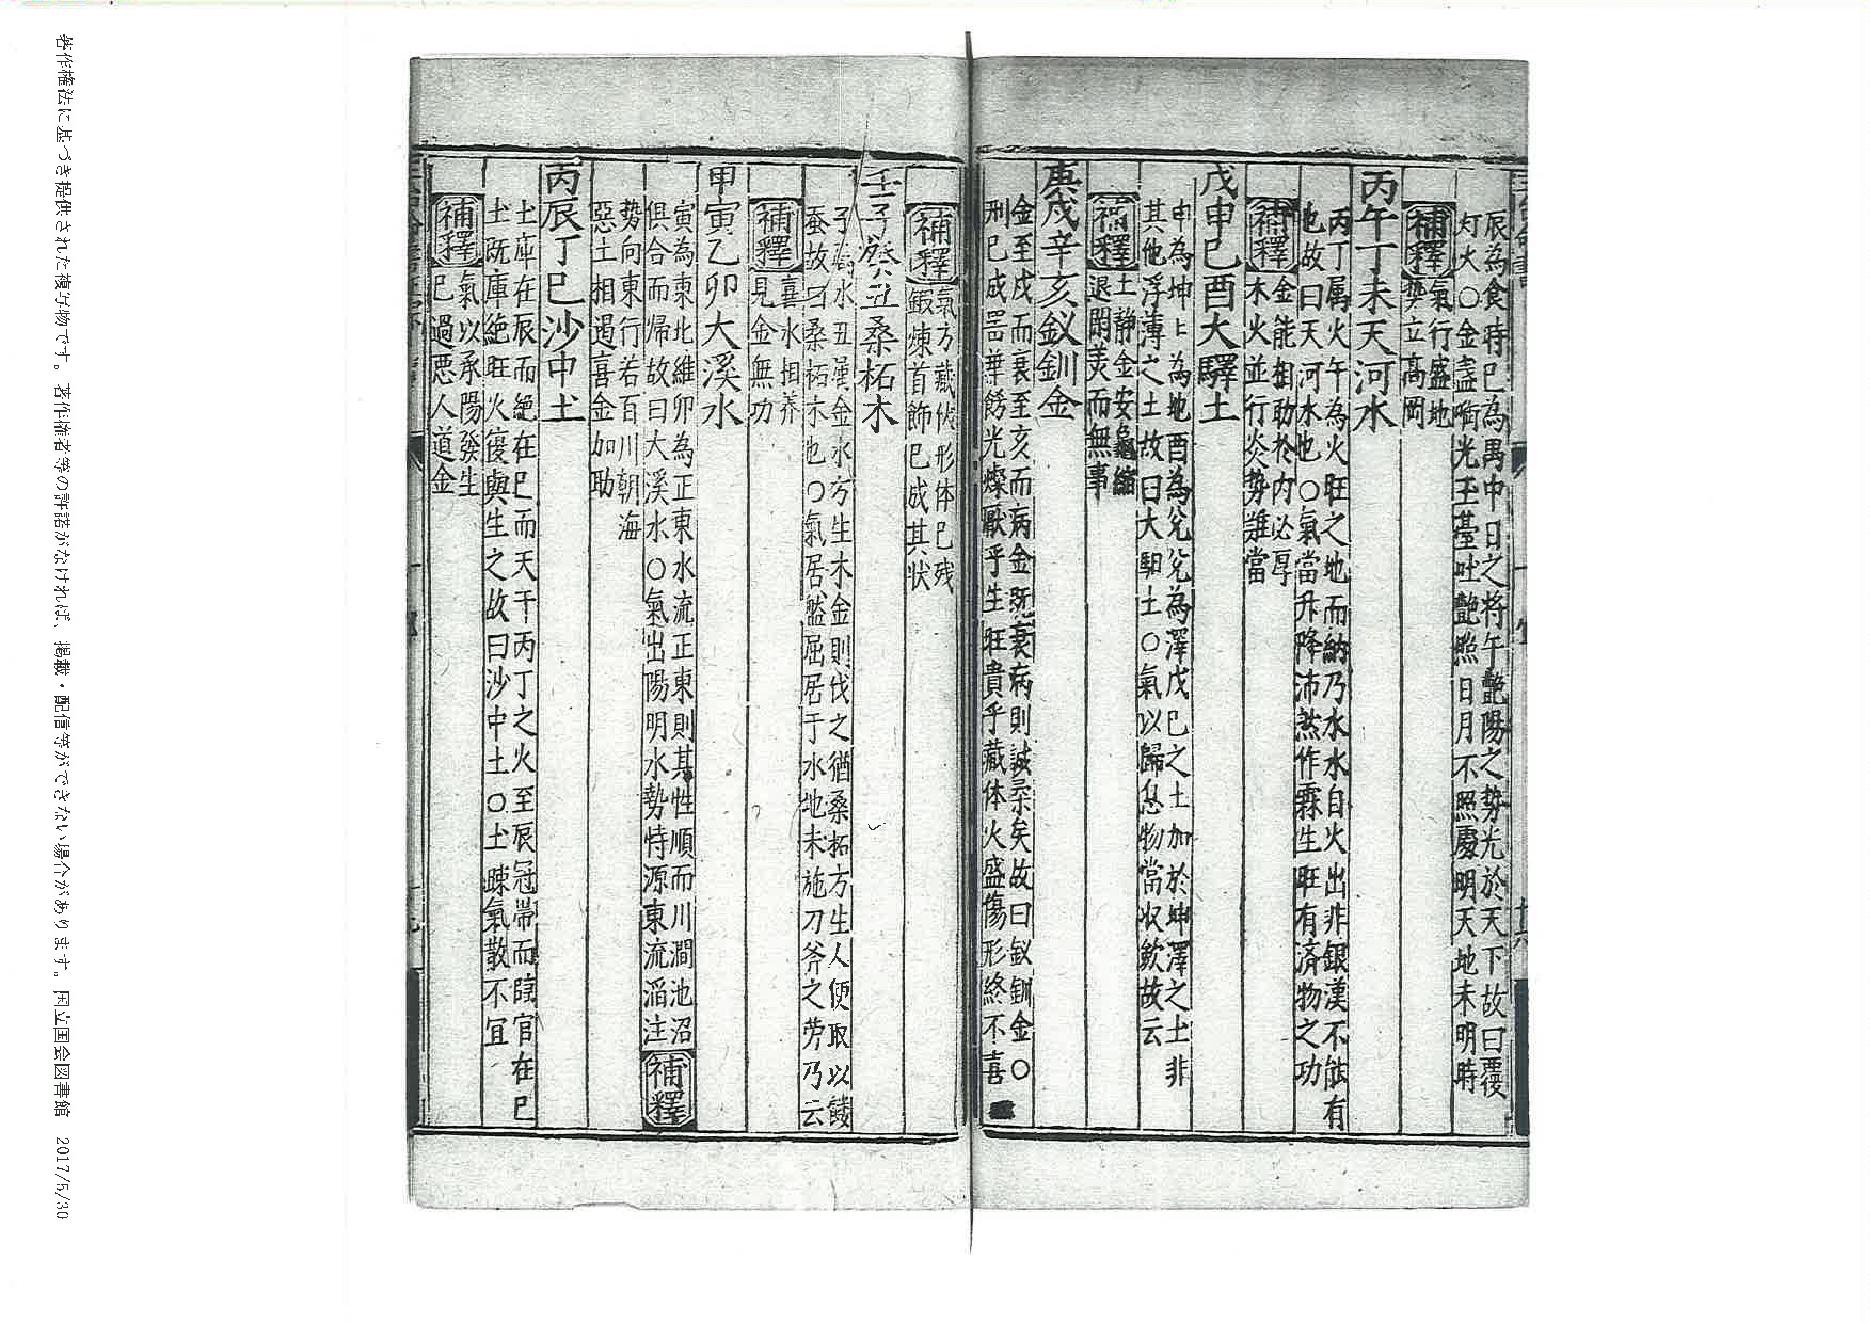 辰為食時巳為禺中日之将午艶陽之勢光於天下故曰覆
灯火〇金盞啣光玉䑓吐艶照日月不照處明天地未明時
補釋
氣行盛地
獎立高岡
丙午丁未天河水
丙丁属火午為火旺之地而納乃水水自火出非銀漢不能有
也故曰天河水也〇氣當升降沛然作霖生旺有済物之功
補釋
金能相助於内必厚
木火並行炎勢難當
戊申己酉大驛土
申為坤上為地酉為兊兊為澤戊己之土加於坤澤之土非
其他浮薄之土故曰大馹土〇氣以歸息物當收歛故云
補釋
土静金安
退閑美而無事
庚戌辛亥釵釧金
金至戌而衰至亥而病金既衰病則誠柔矣故曰釵釧金〇
刑巳成噐華餙光燦厭乎生旺貴乎藏体火盛傷形終不喜
補釋
氣方藏伏形体巳残
鍜煉首飾巳成其状
壬子癸丑桑柘木
子属水丑属金水方生木金則伐之猶桑柘方生人便取以餧
蚕故曰桑柘木也〇氣居盤屈居于水地未施刀斧之劳乃云
補釋
喜水相养
見金無功
甲寅乙卯大溪水
寅為東北維卯為正東水流正東則其性順而川澗池沼
俱合而帰故曰大溪水〇氣出陽明水勢恃源東流滔注
補釋
勢向東行若百川朝海
惡土相遇喜金加助
丙辰丁巳沙中土
土庫在辰而絶在巳而天干丙丁之火至辰冠帯而臨官在巳
土既庫絶旺火復與生之故曰沙中土〇土踈氣散不宜
補釋
氣以承陽發生
巳過悪人道金
著作権法に基づき提供された複写物です。著作権者等の許諾がなければ、掲載・配信等ができない場合があります。国立国会図書館 2017/5/30